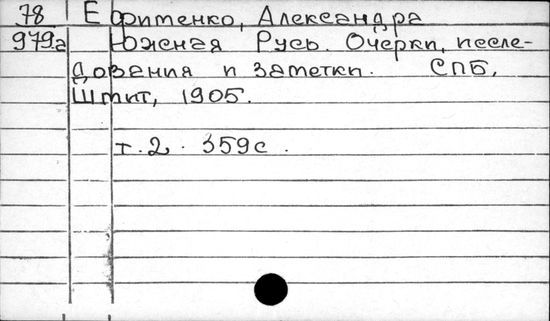 78 Ефименко, Александра
979а Южная Русь. Очерки, иссле-
дования и заметки. СПБ,
Штит, 1905.
т.2. 359с.